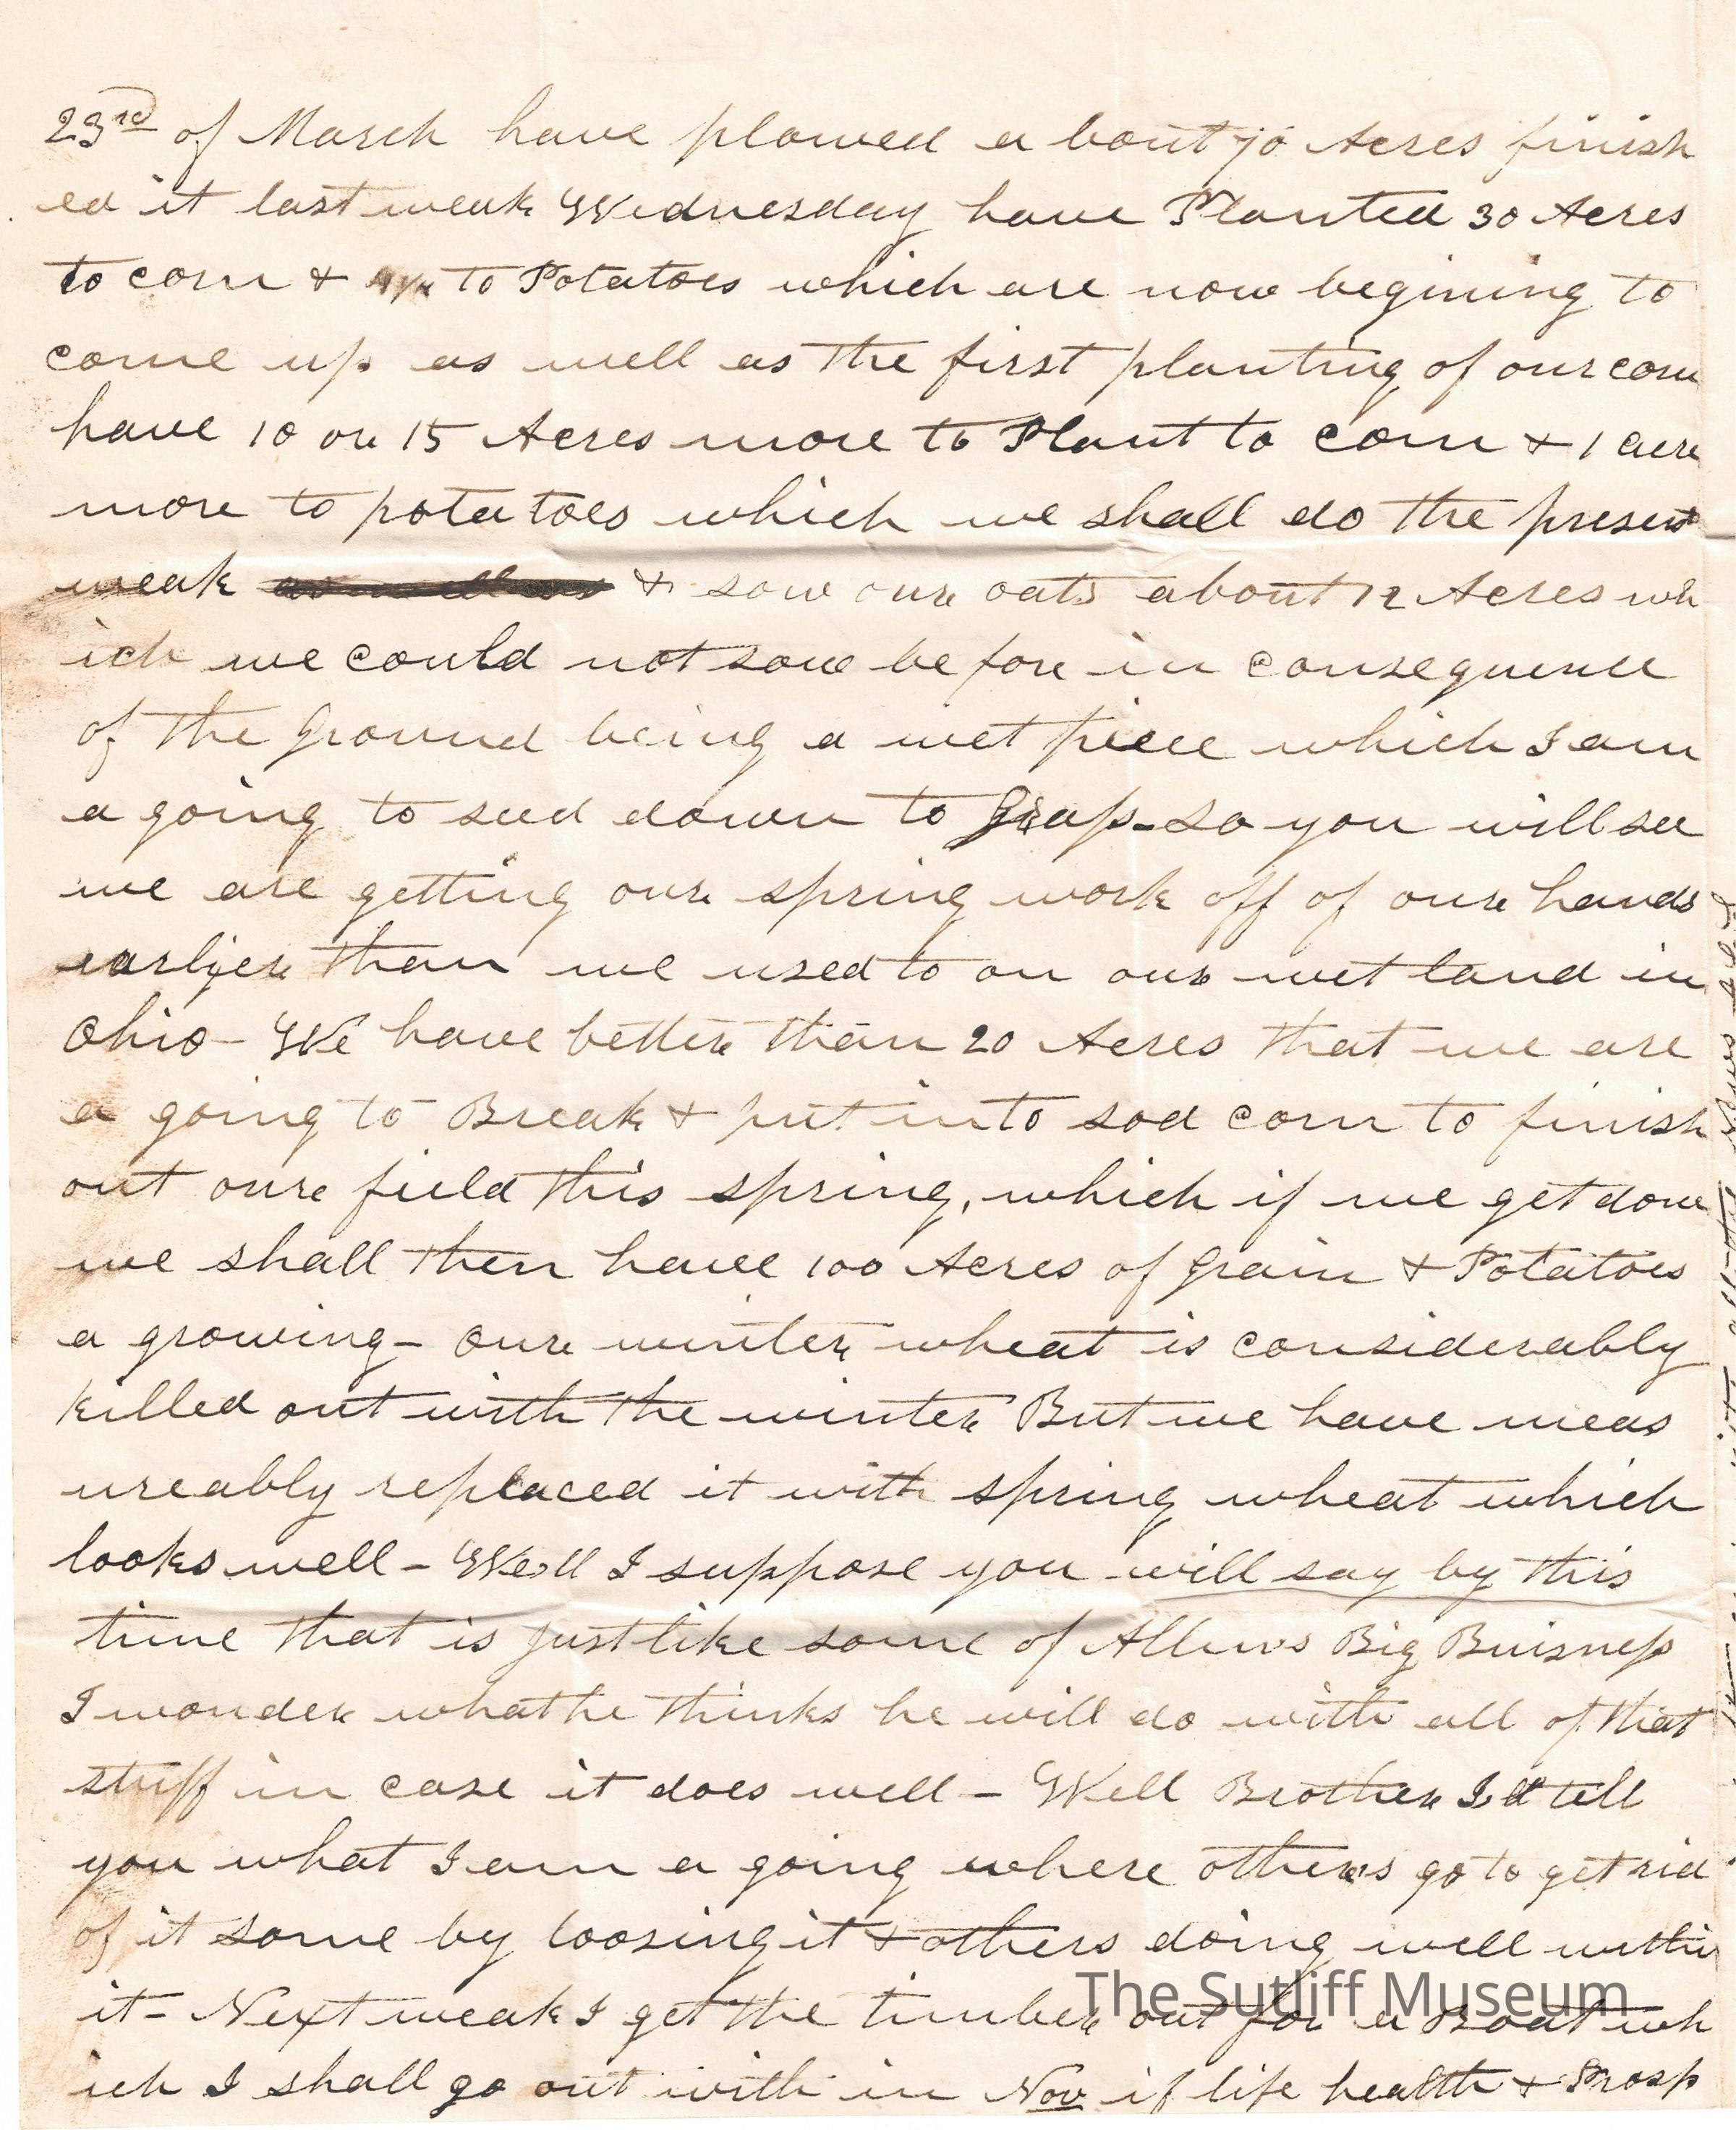 23rd of March have plowed a bout 70 Acres finish
ed it last weak Wednesday have Planted 30 Acres
to corn & to Potatoes which are now begining to
come up as well as the first planting of our corn
have 10 or 15 Acres more to Plant to corn & 1 acre
more to potatoes which we shall do the present
weak & sow oure oats about 12 Acres wh
ich we could not sow before in consequence
of the Ground being a wet piece which I am
a going to seed down to Grass - So you will see
we are getting oure spring work off of oure hands
earlyer than we used to on our wet land in
Ohio - We have better than 20 Acres that we are
a going to Break & put into sod corn to finish
out oure field this spring, which if we get done
we shall then have 100 Acres of Grain & Potatoes
a growing - Oure winter wheat is considerably
killed out with the winter But we have meas
ureably replaced it with spring wheat which
looks well - Well I suppose you will say by this
time that is just like some of Allens Big Buisness
I wonder what he thinks he will do with all of that
stuff in case it does well - Well Brother I'll tell
you what I am a going where others go to get rid
of it some by loosing it & others doing well with
it - Next weak I get the timber out for a Boat wh
ich I shall go out with in Nov if life health & Prosp
The Sutliff Museum